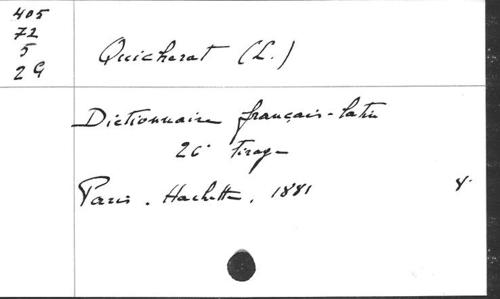 405
72
5
2G
Quicherat (L.)
Dictionnaire français-latin
26e tirage
Paris. Hachette, 1881 8°